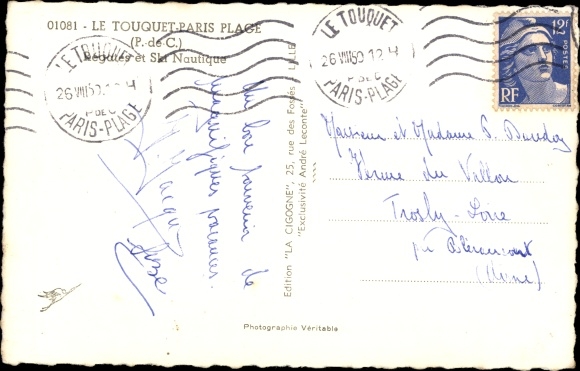 01081 - LE TOUQUET-PARIS PLAGE
(P.-de-C.)
Régates et Ski Nautique
LE TOUQUET
PARIS-PLAGE
26 VIII 50 12 H
P DE C
LE TOUQUET
26 VIII 50 12 H
P DE C
PARIS-PLAGE
12F
POSTES
RF
Un bon souvenir de
magnifiques vacances.
Edition "LA CIGOGNE", 25, rue des Fossés - LILLE
"Exclusivité André Leconte"
Monsieur et Madame P.
Ferme du Vallon
Trosly-Loire
par Blérancourt
(Aisne)
Photographie Véritable